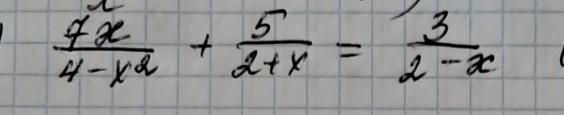 7x/(4-x²) + 5/(2+x) = 3/(2-x)